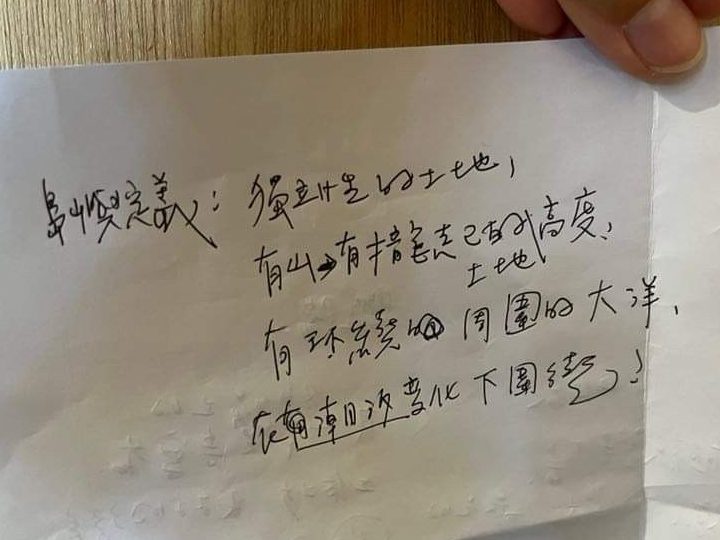 島嶼定義：獨立性的土地，
有山→有指會自己的高度、
土地
有環繞的周圍的大洋，
在有潮汐變化下圍繞！